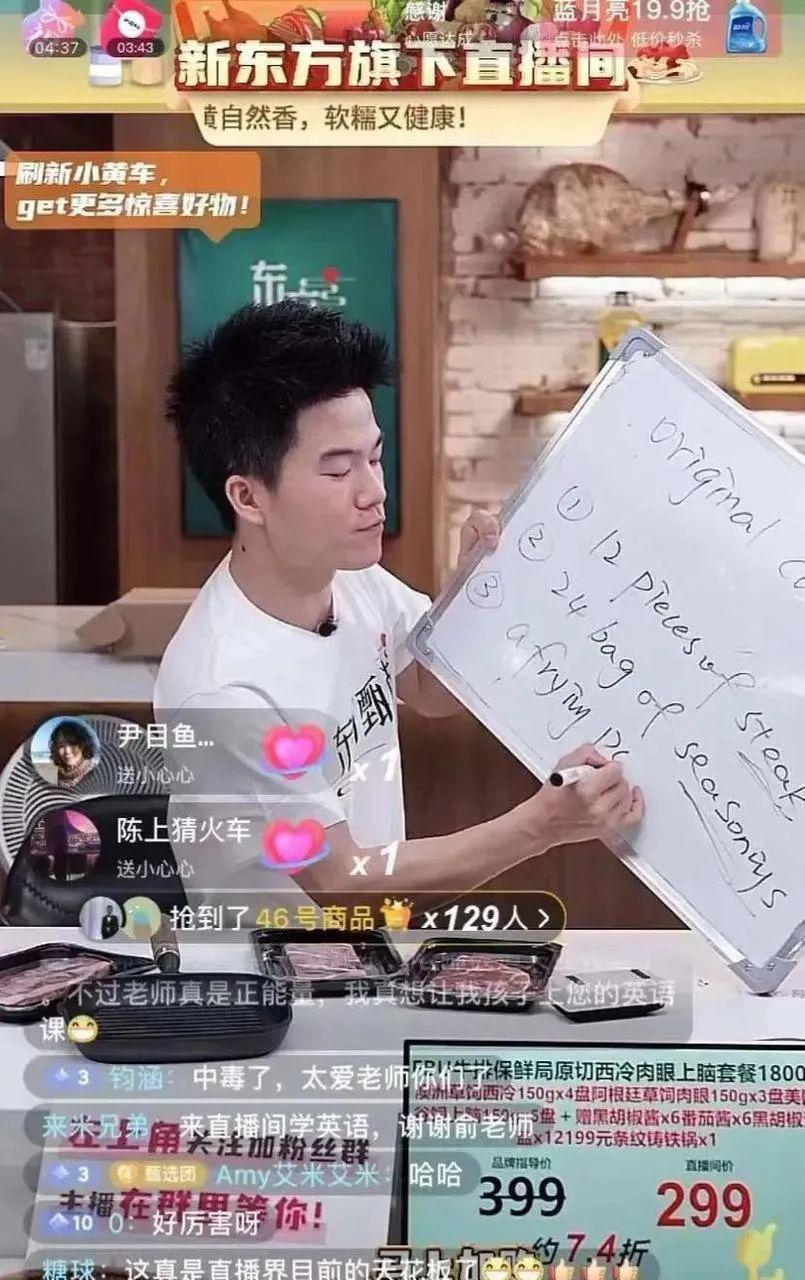 04:37
03:43
感谢
心愿达成
蓝月亮19.9抢
点击此处 低价秒杀
新东方旗下直播间
黄自然香，软糯又健康！
刷新小黄车，
get更多惊喜好物！
original
① 12 pieces of steak
② 24 bag of seasonings
③ a frying
尹目鱼...
送小心心
x 1
陈上猜火车
送小心心
x 1
抢到了46号商品 x129人 >
。不过老师真是正能量，我真想让我孩子上您的英语
课😁
3 钧涵：中毒了，太爱老师你们了
来米兄弟：来直播间学英语，谢谢俞老师
左上角关注加粉丝群
3 甄选团 Amy艾米艾米：哈哈
主播在群里等你！
10 0：好厉害呀
糖球：这真是直播界目前的天花板了😁😁👍👍👍
牛排保鲜局原切西冷肉眼上脑套餐1800
澳洲草饲西冷150gx4盘阿根廷草饲肉眼150gx3盘美
谷饲上脑150gx5盘 + 赠黑胡椒酱x6番茄酱x6黑胡椒
盐x12199元条纹铸铁锅x1
品牌指导价
399
直播间价
299
约7.4折